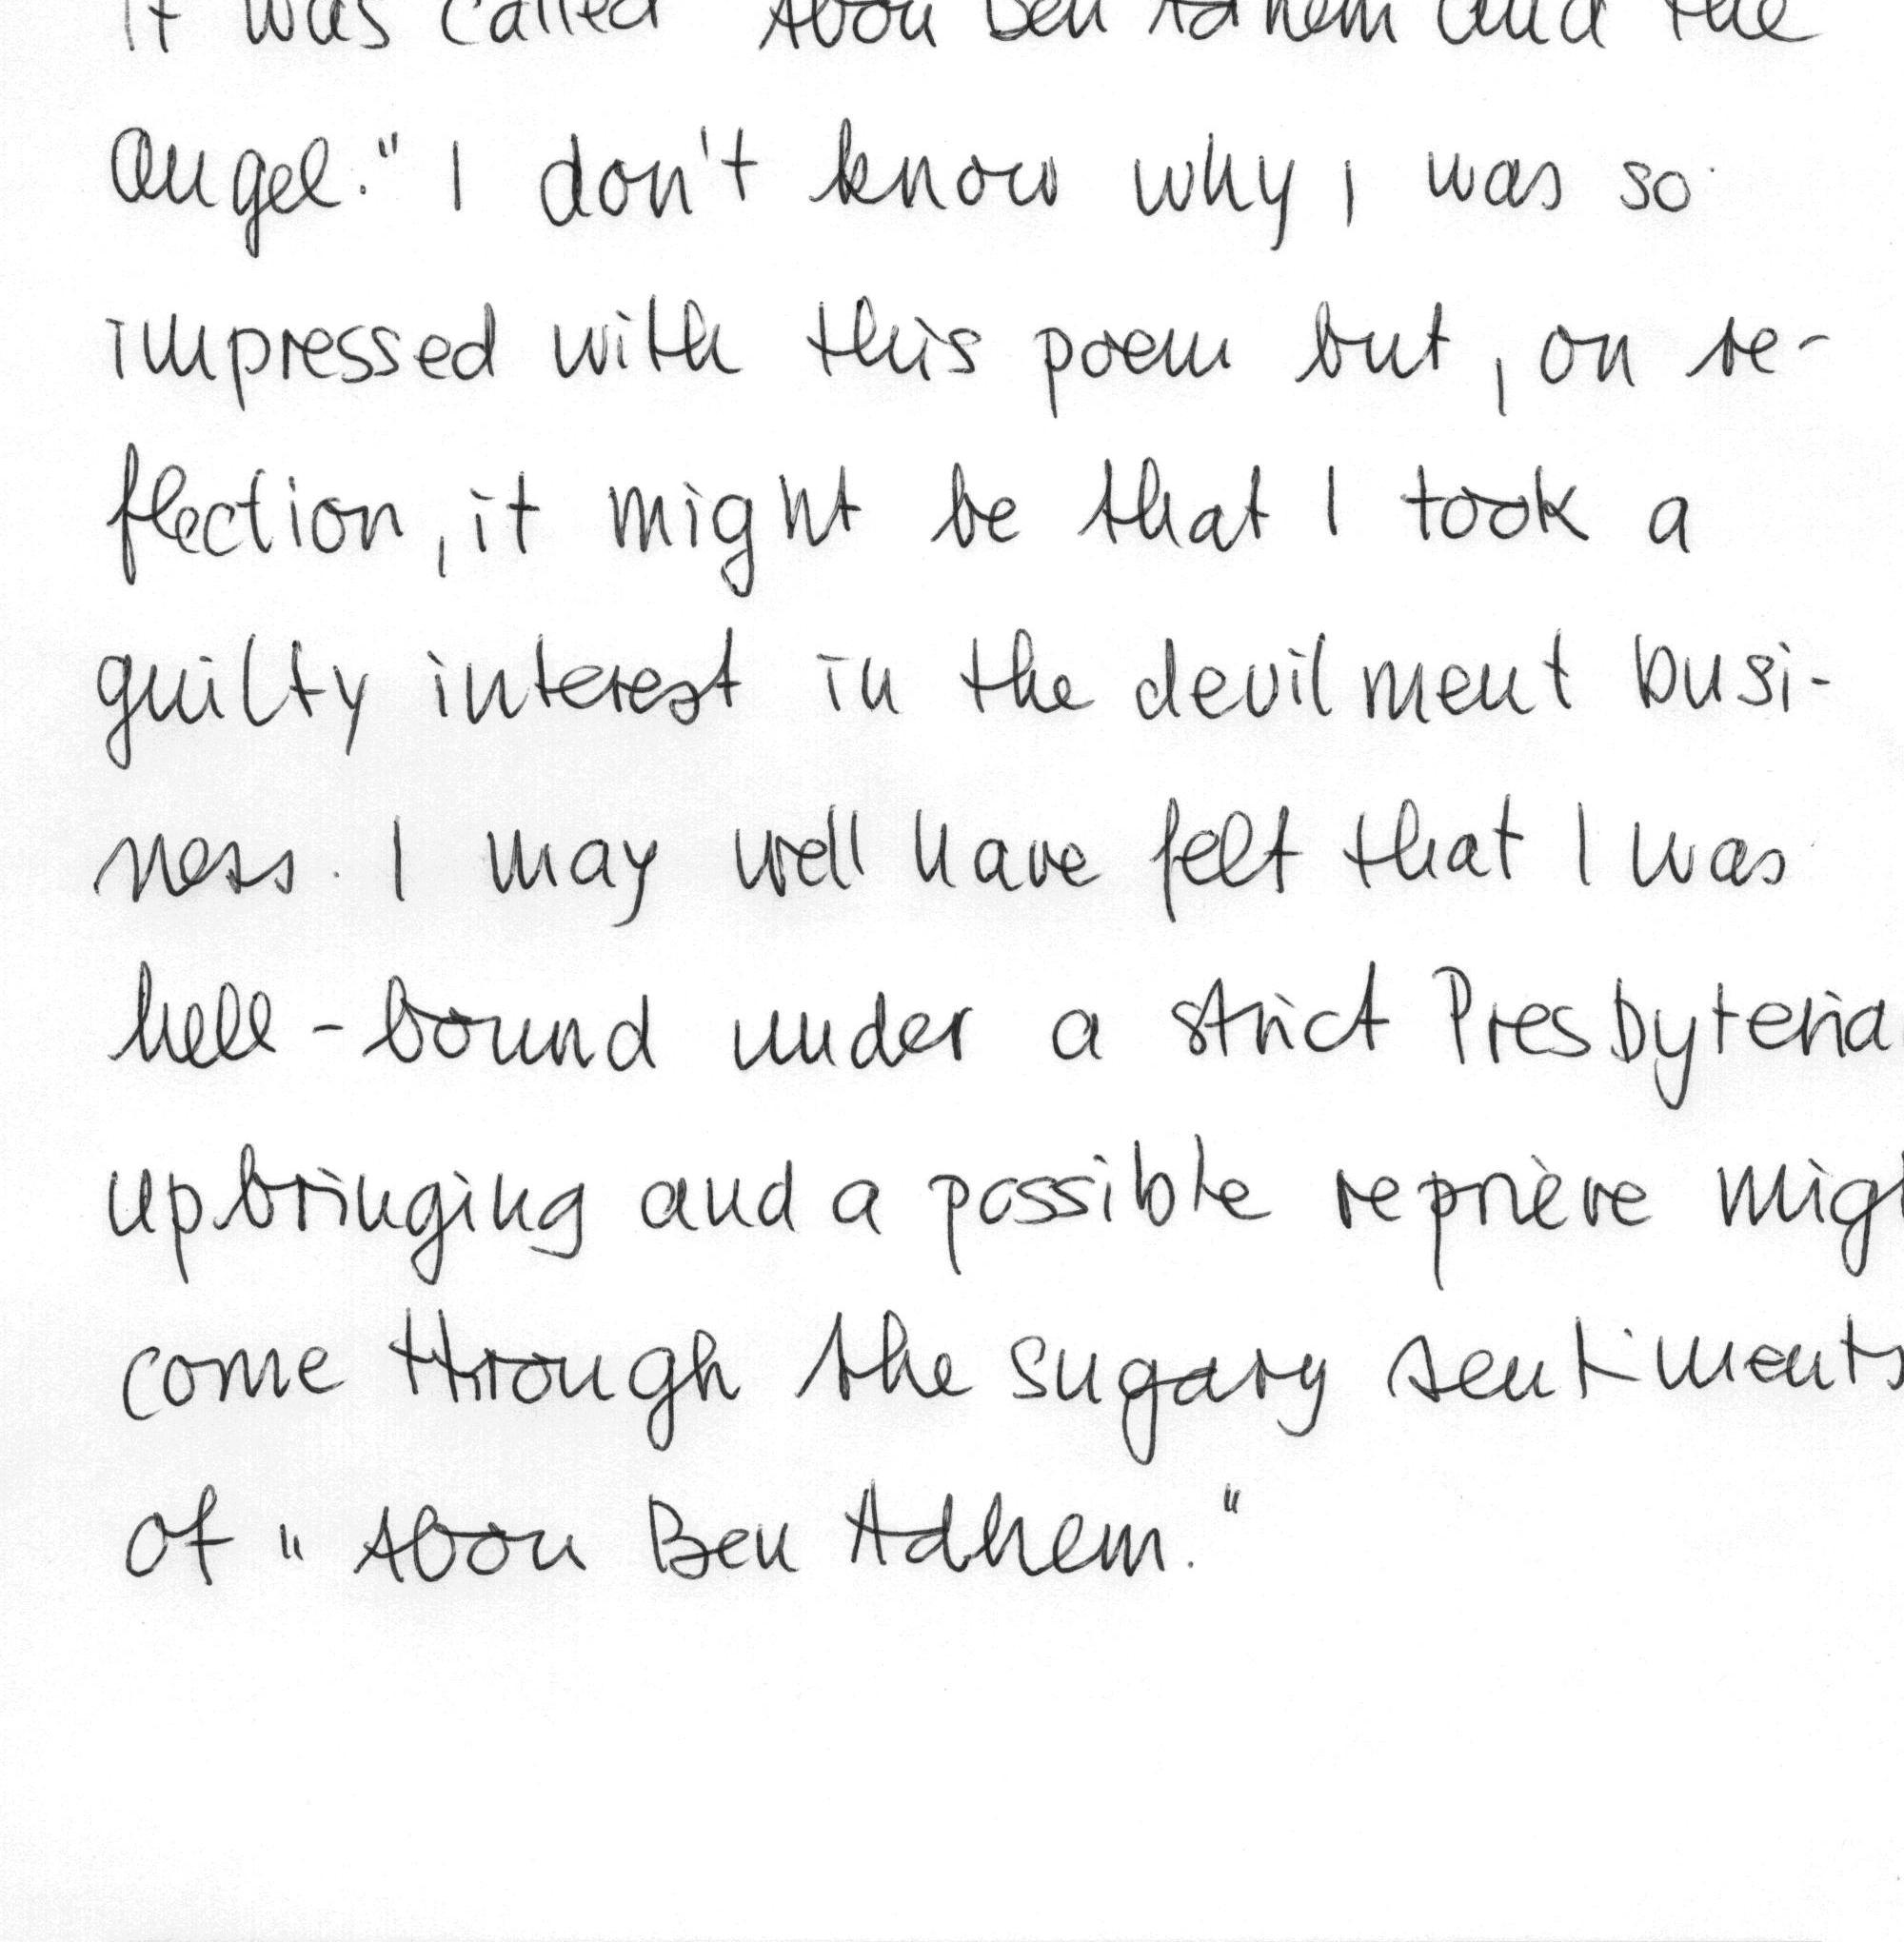 It was called "Abou Ben Adhem and the
Angel." I don't know why I was so
impressed with this poem but, on re-
flection, it might be that I took a
guilty interest in the devilment busi-
ness. I may well have felt that I was
hell-bound under a strict Presbyteria
upbringing and a possible reprieve migh
come through the sugary sentiments
of "Abou Ben Adhem."